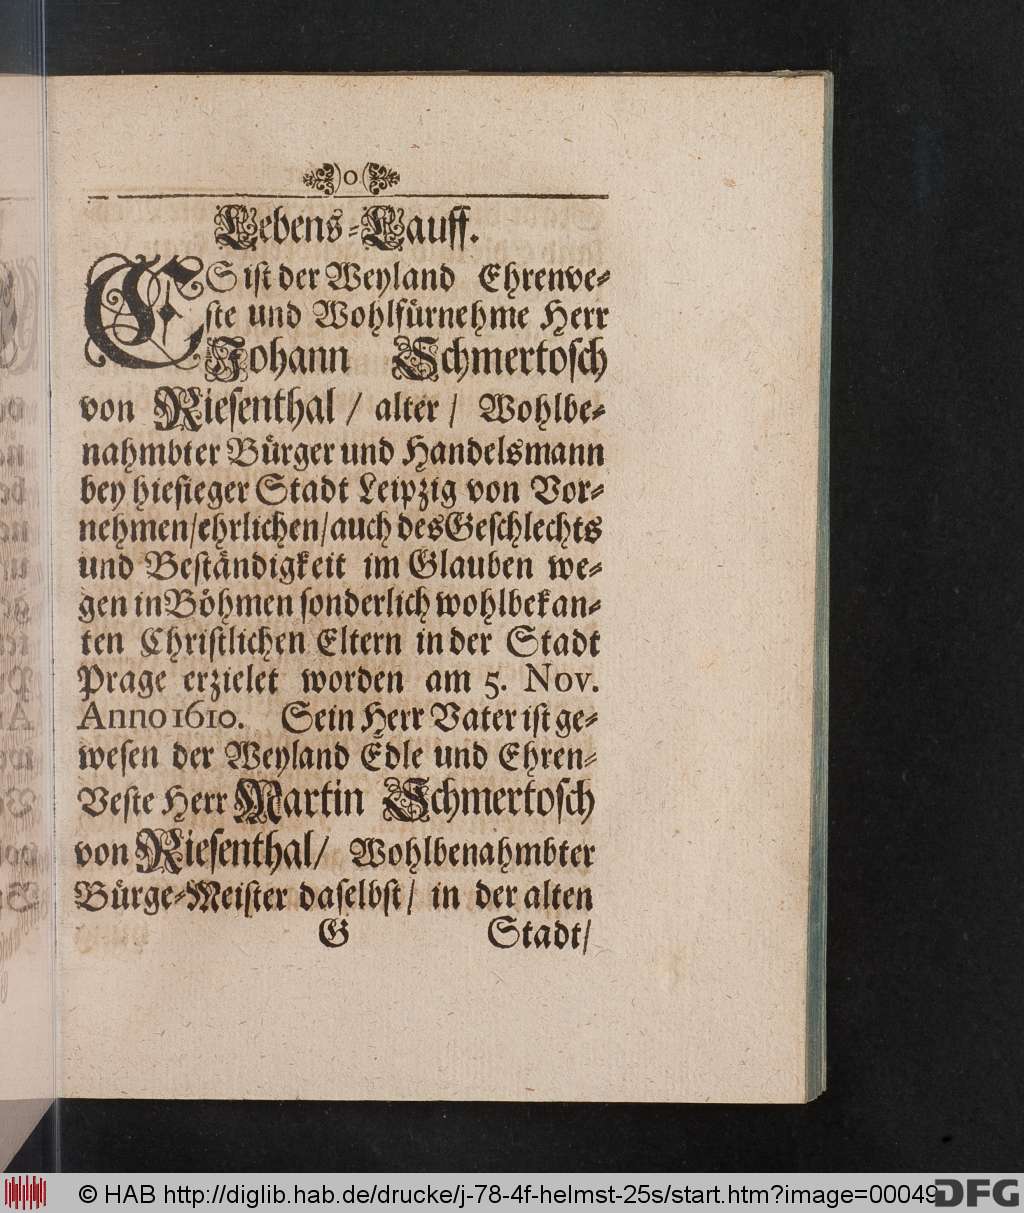 )o(
Lebens-Lauff.
ES ist der Weyland Ehrenve-
ste und Wohlfürnehme Herr
Johann Schmertosch
von Riesenthal / alter / Wohlbe-
nahmbter Bürger und Handelsmann
bey hiesieger Stadt Leipzig von Vor-
nehmen/ehrlichen/auch des Geschlechts
und Beständigkeit im Glauben we-
gen in Böhmen sonderlich wohlbekan-
ten Christlichen Eltern in der Stadt
Prage erzielet worden am 5. Nov.
Anno 1610. Sein Herr Vater ist ge-
wesen der Weyland Edle und Ehren-
Veste Herr Martin Schmertosch
von Riesenthal/ Wohlbenahmbter
Bürge-Meister daselbst/ in der alten
G Stadt/
© HAB http://diglib.hab.de/drucke/j-78-4f-helmst-25s/start.htm?image=00049
DFG